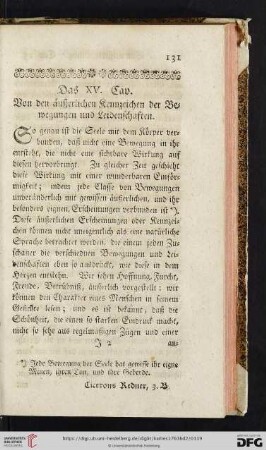 131
Das XV. Cap.
Von den äußerlichen Kennzeichen der Be-
wegungen und Leidenschaften.
So genau ist die Seele mit dem Körper ver-
bunden, daß nicht eine Bewegung in ihr
entsteht, die nicht eine sichtbare Wirkung auf
diesen hervorbringt. Zu gleicher Zeit geschieht
diese Wirkung mit einer wunderbaren Einför-
migkeit; indem jede Classe von Bewegungen
unveränderlich mit gewissen äußerlichen, und ihr
besonders eignen Erscheinungen verbunden ist *).
Diese äußerlichen Erscheinungen oder Kennzei-
chen können nicht uneigentlich als eine natürliche
Sprache betrachtet werden, die einem jeden Zu-
schauer die verschiednen Bewegungen und Lei-
denschaften eben so ausdrückt, wie diese in dem
Herzen entstehn. Wir sehen Hoffnung, Furcht,
Freude, Betrübniß, äußerlich vorgestellt; wir
können den Charakter eines Menschen in seinem
Gesichte lesen; und es ist bekannt, daß die
Schönheit, die einen so starken Eindruck macht,
nicht so sehr aus regelmäßigen Zügen und einer
J 2
aus-
*) Jede Bewegung der Seele hat gewisse ihr eigne
Minen, ihren Ton, und ihre Geberde.
Cicerons Redner, 3. B.
http://digi.ub.uni-heidelberg.de/diglit/
UNIVERSITÄTS-
BIBLIOTHEK
HEIDELBERG
Gefördert durch die
DFG